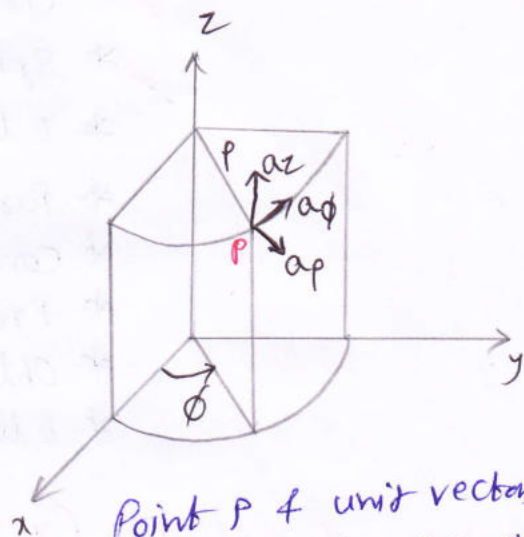 Z
ρ
az
aϕ
P
aρ
y
ϕ
x
Point P & unit vector